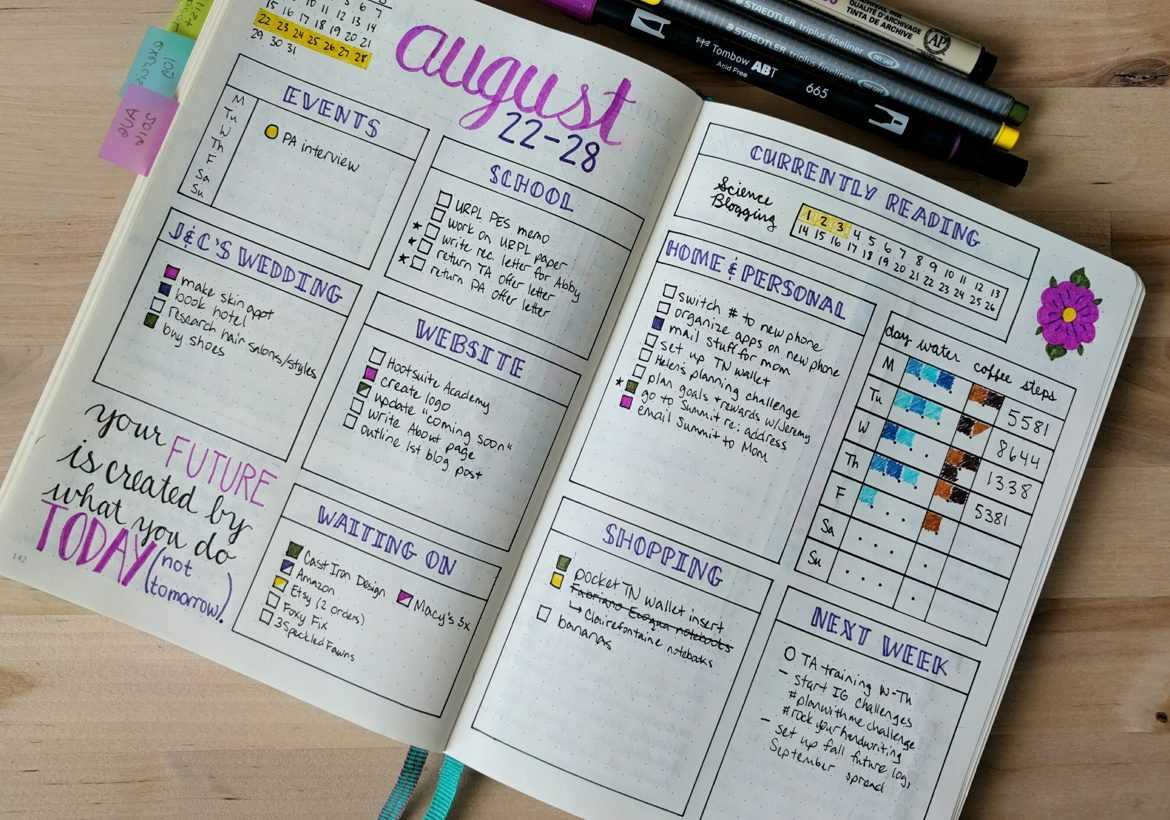 6 7
8 9 10 11 12 13 14
15 16 17 18 19 20 21
22 23 24 25 26 27 28
29 30 31
2016 AUG
august
22-28
EVENTS
M
Tu
W
Th
F
Sa
Su
PA interview
SCHOOL
URPL PES memo
work on URPL paper
write rec. letter for Abby
return TA offer letter
return PA offer letter
J&C'S WEDDING
make skin appt
book hotel
research hair salons/styles
buy shoes
WEBSITE
Hootsuite Academy
create logo
update "coming soon"
write About page
outline 1st blog post
your FUTURE
is created by
what you do
TODAY (not
tomorrow).
142
WAITING ON
Cast Iron Design
Amazon
Macy's 3x
Etsy (2 orders)
Foxy Fix
3 Speckled Fawns
CURRENTLY READING
Science
Blogging
1 2 3 4 5 6 7 8 9 10 11 12 13
14 15 16 17 18 19 20 21 22 23 24 25 26
HOME & PERSONAL
switch # to new phone
organize apps on new phone
mail stuff for mom
set up TN wallet
Helen's planning challenge
plan goals + rewards w/Jeremy
go to Summit re: address
email Summit to Mom
day water coffee steps
M 5581
Tu 8644
W 1338
Th 5381
F
Sa
Su
SHOPPING
pocket TN wallet insert
Fabriano Ecoqua notebooks
↳ Clairefontaine notebooks
bananas
NEXT WEEK
TA training W-Th
- start IG challenges
#planwithmechallenge
#rockyourhandwriting
- set up fall future log,
September spread
QUALITÉ D'ARCHIVAGE
TINTA DE ARCHIVE
AP
STAEDTLER triplus fineliner
STAEDTLER triplus fineliner
Tombow ABT
Acid Free
665